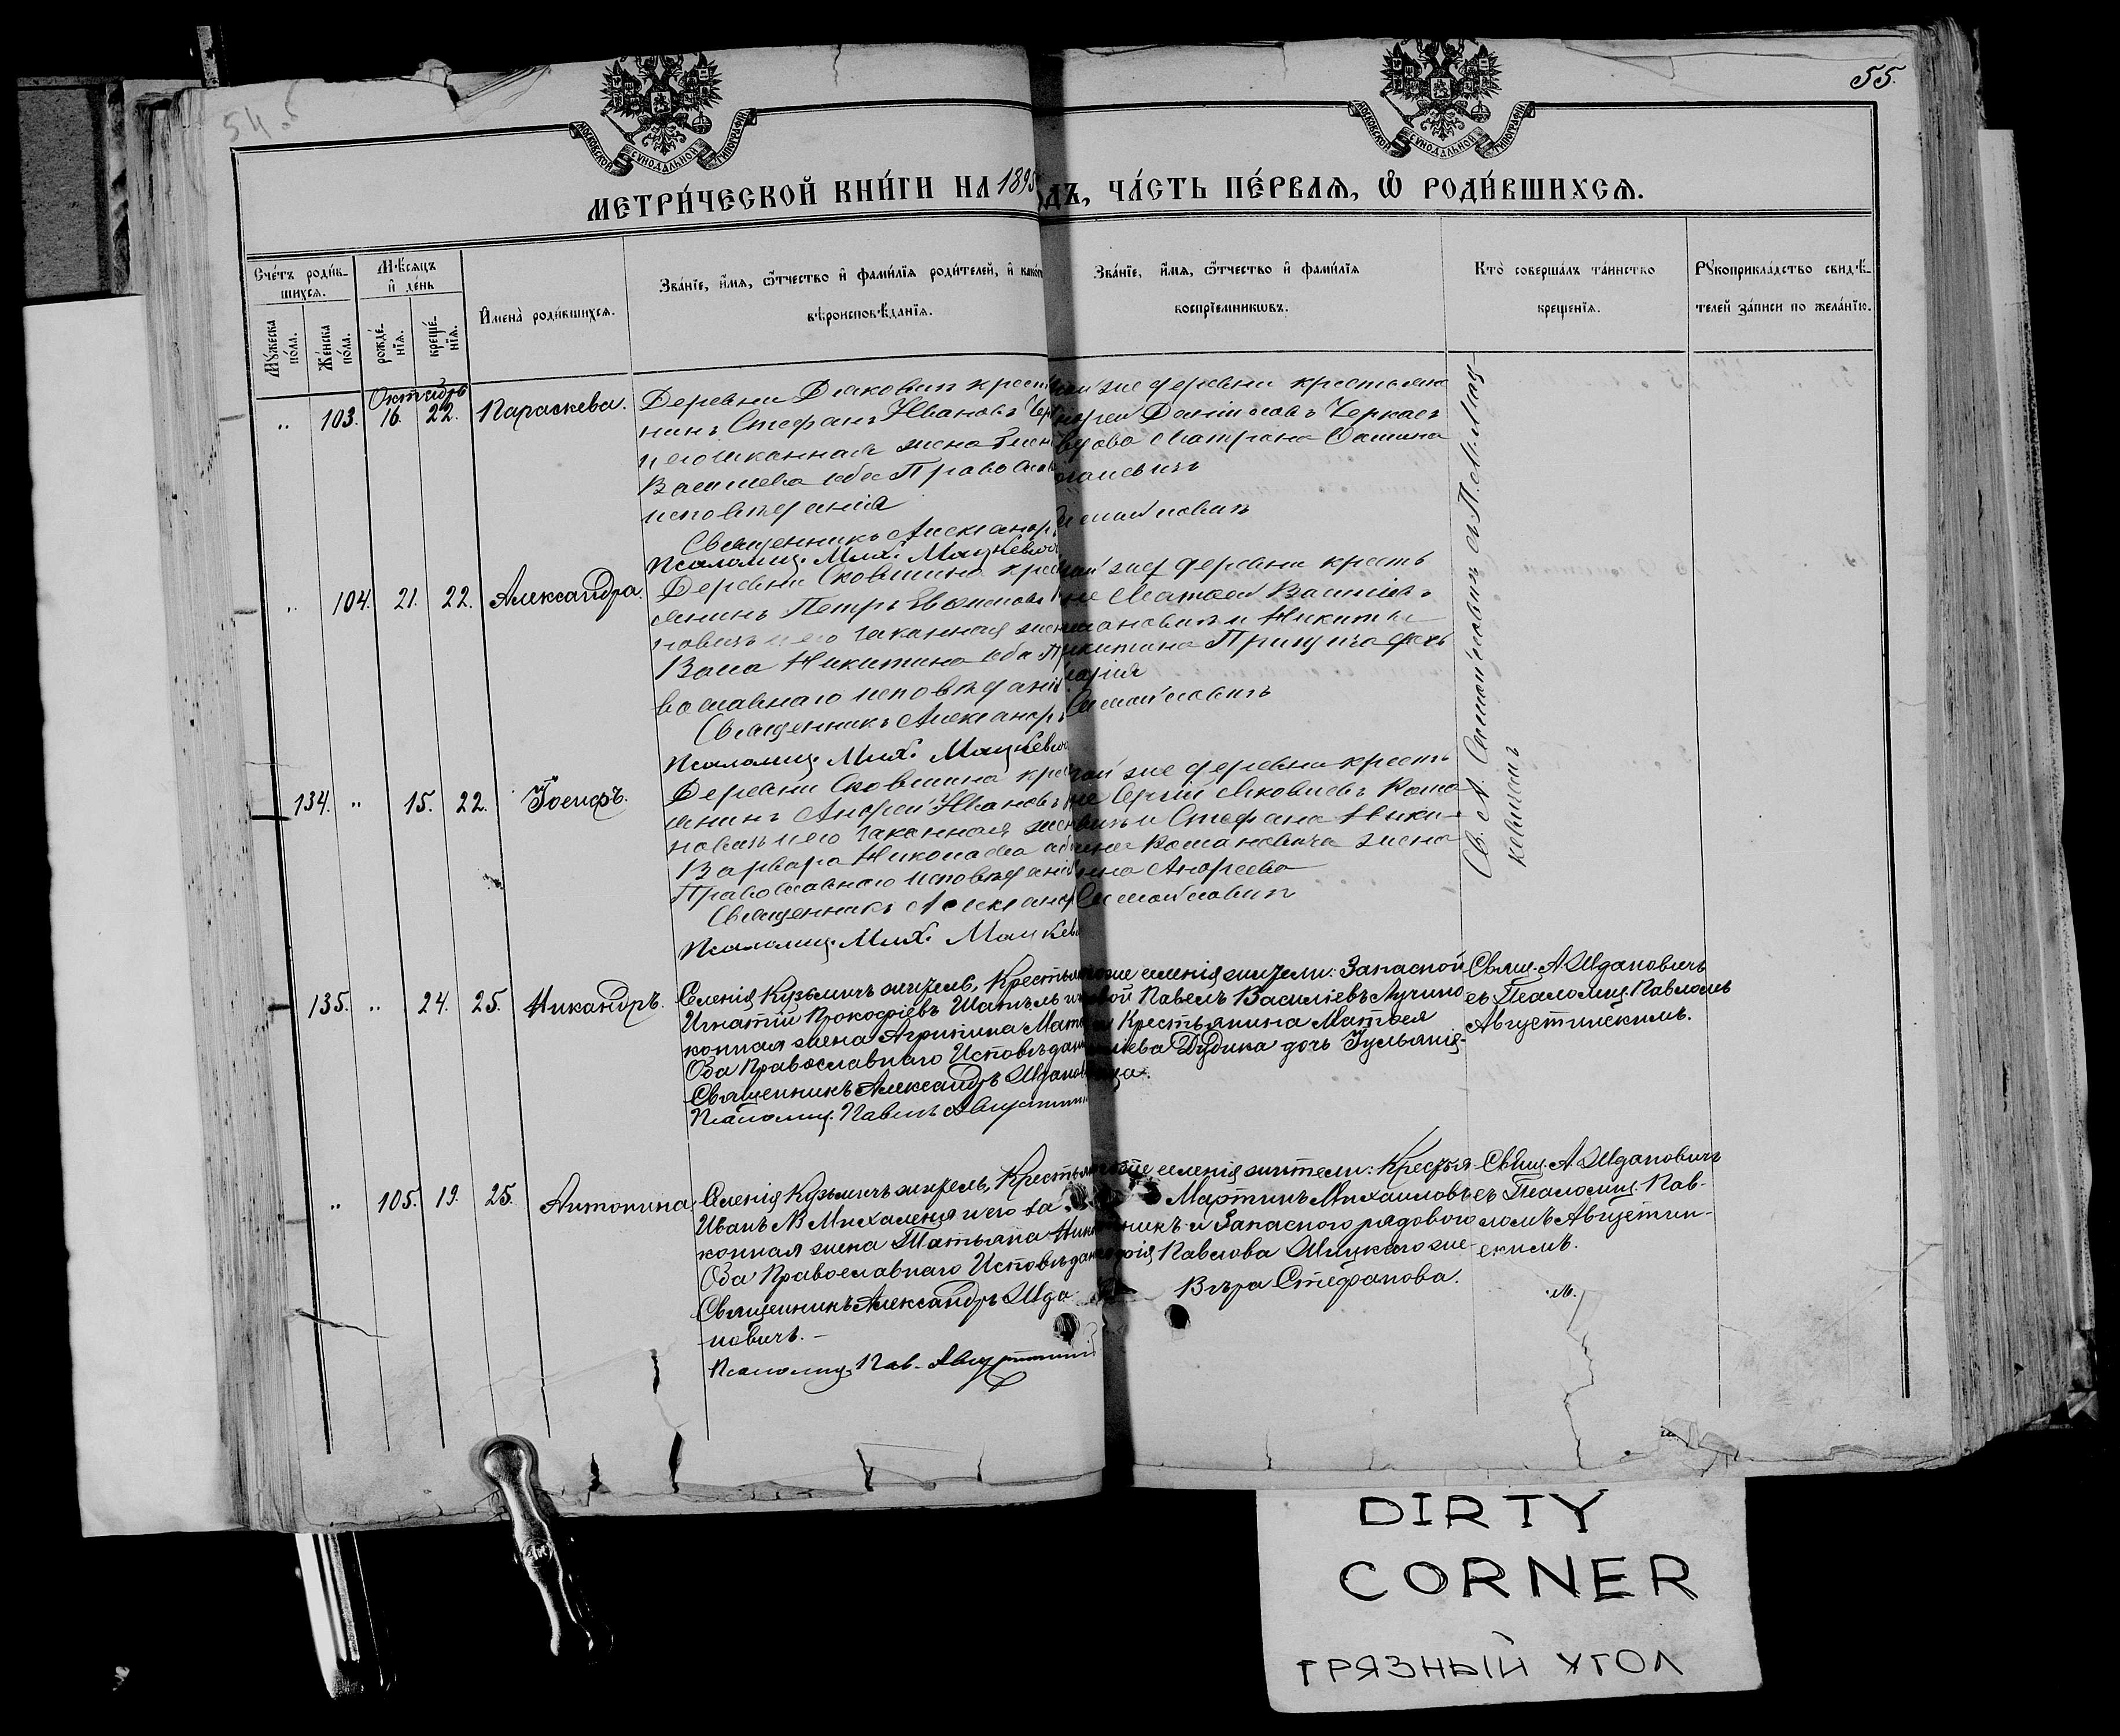 54.
55.
МОСКОВСКОЙ СУНОДАЛЬНОЙ ТИПОГРАФІИ
МОСКОВСКОЙ СУНОДАЛЬНОЙ ТИПОГРАФІИ
МЕТРИ́ЧЕСКОЙ КНИ́ГИ НА 1895 ДЪ, ЧА́СТЬ ПЕ́РВАЯ, Ѡ РОДИ́ВШИХСЯ.
Сче́тъ роди́в-
шихся.
Му́жеска
по́ла.
Же́нска
по́ла.
Мѣ́сяцъ
и҆ де́нь
рожде́-
нїя.
креще́-
нїя.
И҆мена̀ роди́вшихся.
Зва́нїе, и҆́мя, ѻ҆́тчество и҆ фами́лїя роди́телей, и҆ како́
вѣроисповѣ́данїя.
Зва́нїе, и҆́мя, ѻ҆́тчество и҆ фами́лїя
воспрїе́мникѡвъ.
Кто̀ соверша́лъ та́инство
креще́нїя.
Рꙋкоприкла́дство свидѣ́-
телей за́писи по жела́нїю.
Октября
" 103. 16. 22. Параскева.
Деревни Дяковичъ крест
нинъ Стефанъ Ивановъ Чер
и его законная жена
Васильева оба Правосла
исповѣданія
Священникъ Александръ
Псаломщ. Мих. Мацкевич
той же деревни крестьяне
Андрей Даніиловъ Черкасъ
вдова Матрона Фомина
Самойловичъ
" 104. 21. 22. Александра.
Деревни Сковшина крес
янинъ Петръ Евфимовъ
новичъ и его законная жен
Васа Никитина оба Пр
вославнаго исповѣдані
Священникъ Александръ
Псаломщ. Мих. Мацкевич
той же деревни кресть
не Матвей Васильевъ
мановичъ и Никиты
Никитина дочь
Самойловичъ
134. " 15. 22. Іосифъ.
Деревни Сковшина кре
янинъ Андрей Ивановъ
новичъ и его законная жен
Варвара Николаева об
Православнаго исповѣдані
Священникъ Александръ
Псаломщ. Мих. Мацкев
той же деревни кресть
не Сергій Яковлевъ Рома
вичъ и Стефана Ники-
Романовича жена
Андреева
Самойловичъ
Св. А. Самойловичъ съ П. М. Мац-
кевичемъ
135. " 24. 25. Никандръ.
Селенія Кузьмичъ житель, Крестья
Игнатій Прокофіевъ Шатиль и
конная жена Агрипина Мат
Оба Православнаго Исповѣдан
Священникъ Александръ Жданов
Псаломщ. Павелъ Августин
селенія жители: Запасной
Павелъ Василіевъ Лучино
Крестьянина Матѳея
Дудика дочь Іульянія.
Свящ. А. Ждановичъ
съ Псаломщ. Павломъ
Августинскимъ.
" 105. 19. 25. Антонина
Селенія Кузьмичъ житель, Крестья
Иванъ Михаленя и его за
конная жена Татьяна Ник
Оба Православнаго Исповѣдан
Священникъ Александръ Жда
новичъ.-
Псаломщ. Пав. Августин
селенія жители: Крестья-
Мартинъ Михаиловъ
никъ и Запаснаго рядоваго
Павлова же-
Вѣра Стефанова.
Свящ. А. Ждановичъ
съ Псаломщ. Пав-
ломъ Августин-
скимъ.
DIRTY
CORNER
ГРЯЗНЫЙ УГОЛ